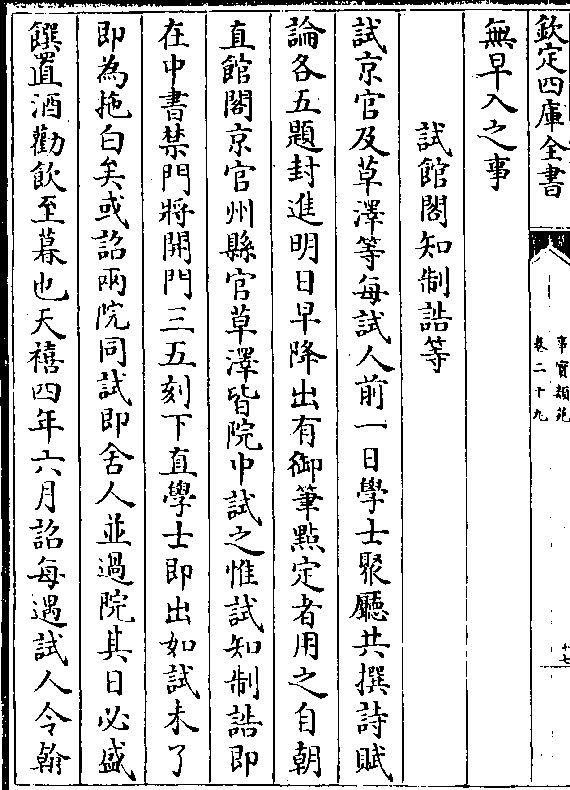 欽定四庫全書
事實類苑
卷二十九
十七
無早入之事
試館閣知制誥等
試京官及草澤等每試人前一日學士聚廳共撰詩賦
論各五題封進明日早降出有御筆點定者用之自朝
直館閣京官州縣官草澤皆院中試之惟試知制誥即
在中書禁門將開門三五刻下直學士即出如試未了
即為拖白矣或詔兩院同試即舍人並過院其日必盛
饌置酒勸飲至暮也天禧四年六月詔每遇試人令翰